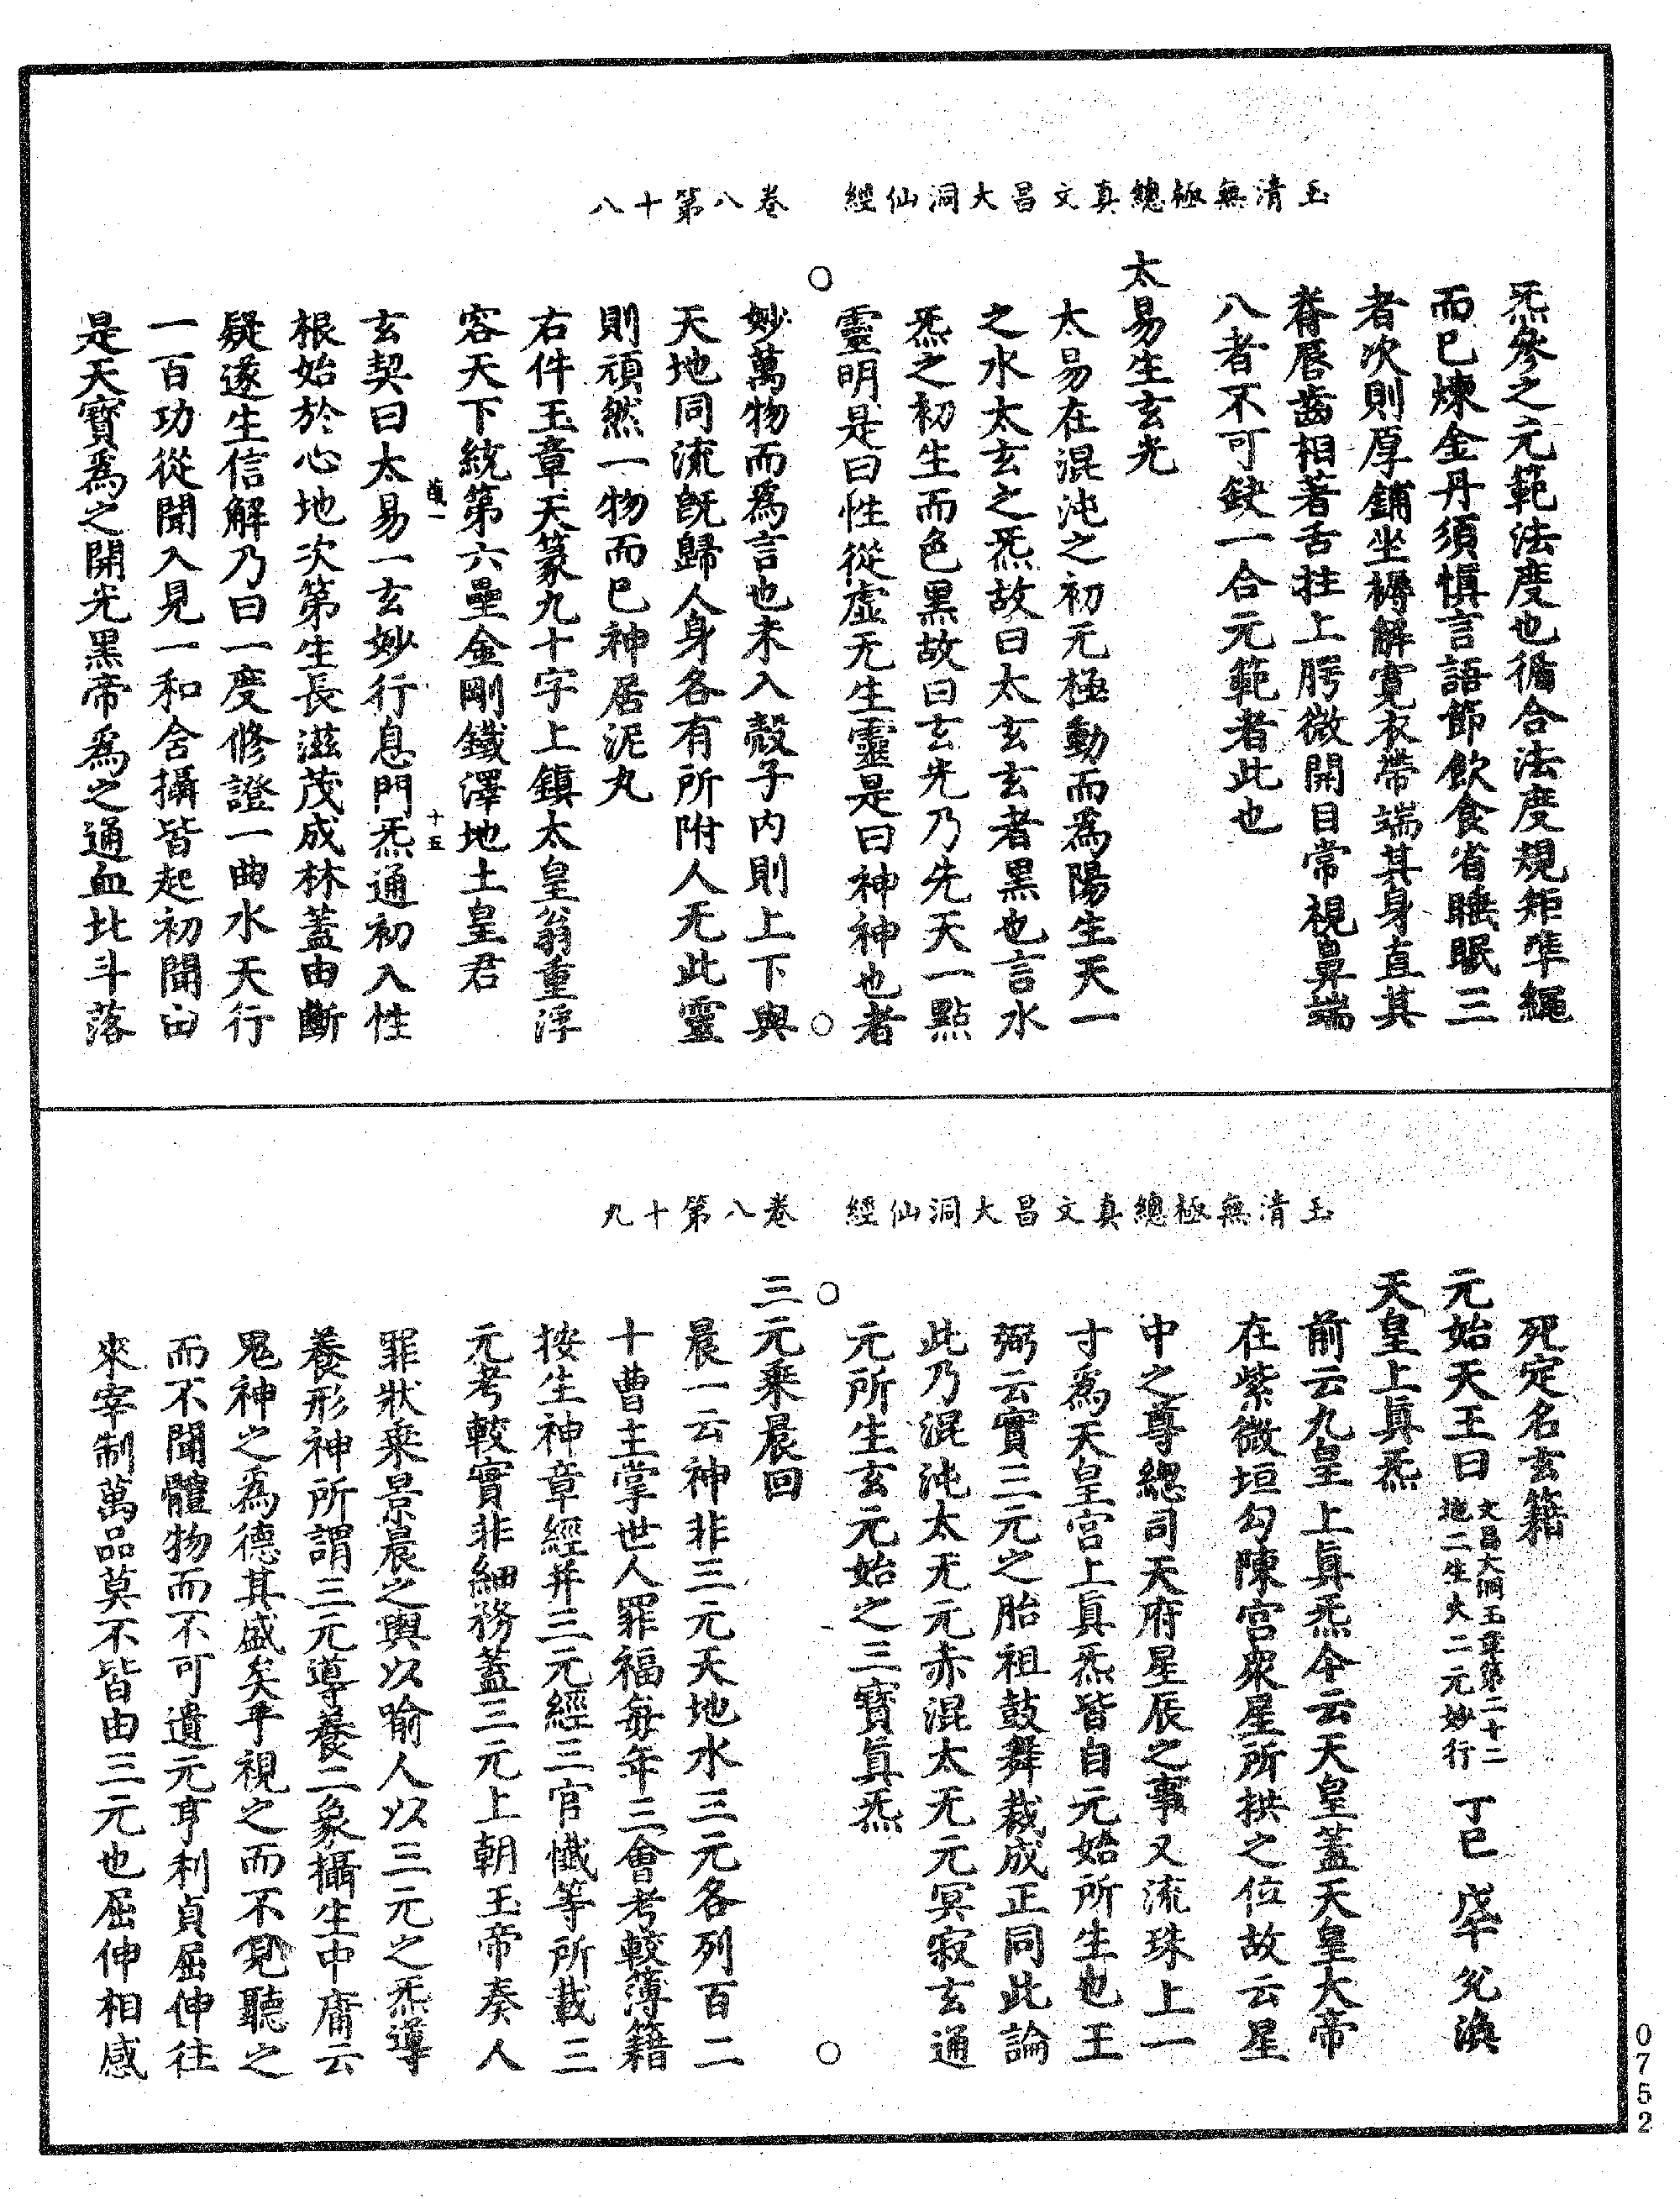 玉清無極總真文昌大洞仙經　卷八第十八
炁參之元範法度也循合法度規矩準繩
而巳煉金丹須慎言語節飲食省睡眠三
者次則厚鋪坐褥解寬衣帶端其身直其
脊唇齒相著舌拄上腭微開目常視鼻端
八者不可缺一合元範者此也
太易生玄光
太易在混沌之初元極動而為陽生天一
之水太玄之炁故曰太玄玄者黑也言水
炁之初生而色黑故曰玄光乃先天一點
靈明是曰性從虛无生靈是曰神神也者
妙萬物而為言也未入殼子內則上下與
天地同流旣歸人身各有所附人无此靈
則頑然一物而巳神居泥丸
右件玉章天篆九十字上鎮太皇翁重浮
容天下統第六壘金剛鐵澤地土皇君
玄契曰太易一玄妙行息門炁通初入性
根始於心地次第生長滋茂成林蓋由斷
疑遂生信解乃曰一度修證一曲水天行
一百功從聞入見一和合攝皆起初聞由
是天寶為之開光黑帝為之通血比斗落
十五
玉清無極總真文昌大洞仙經　卷八第十九
死定名玄籍
元始天王曰 文昌大洞玉章第二十二 地二生火二元妙行 丁巳 戊午 兊渙
天皇上眞炁
前云九皇上眞炁今云天皇蓋天皇大帝
在紫微垣勾陳宮衆星所拱之位故云星
中之尊總司天府星辰之事又流珠上一
寸為天皇宮上眞炁皆自元始所生也王
弼云實三元之胎祖鼓舞裁成正同此論
此乃混沌太无元赤混太无元冥寂玄通
元所生玄元始之三寶眞炁
三元乘晨回
晨一云神非三元天地水三元各列百二
十曹主掌世人罪福每年三會考較薄籍
按生神章經幷三元經三官懺等所載三
元考較實非細務蓋三元上朝玉帝奏人
罪狀乘景晨之輿以喻人以三元之炁導
養形神所謂三元導養二象攝生中庸云
鬼神之為德其盛矣乎視之而不見聽之
而不聞體物而不可遺元亨利貞屈伸往
來宰制萬品莫不皆由三元也屈伸相感
0752